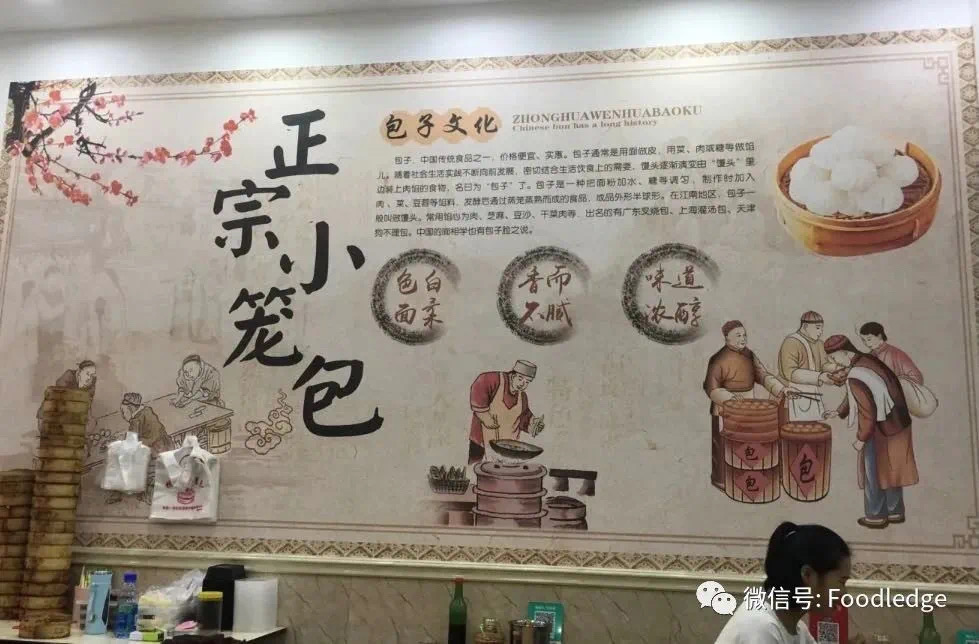 正宗小笼包
包子文化
ZHONGHUAWENHUABAOKU
Chinese bun has a long history
包子，中国传统食品之一，价格便宜、实惠。包子通常是用面做皮，用菜、肉或糖等做馅
儿。随着社会生活实践不断向前发展，密切结合生活饮食上的需要，馒头逐渐演变由“馒头”里
边装上肉馅的食物，名曰为“包子”了。包子是一种把面粉加水、糖等调匀，制作时加入
肉、菜、豆蓉等馅料，发酵后通过蒸笼蒸熟而成的食品，成品外形半球形。在江南地区，包子一
般叫做馒头。常用馅心为肉、芝麻、豆沙、干菜肉等，出名的有广东叉烧包、上海灌汤包、天津
狗不理包。中国的面相学也有包子脸之说。
色白
面柔
香而
不腻
味道
浓醇
包
包
包
微信号: Foodledge